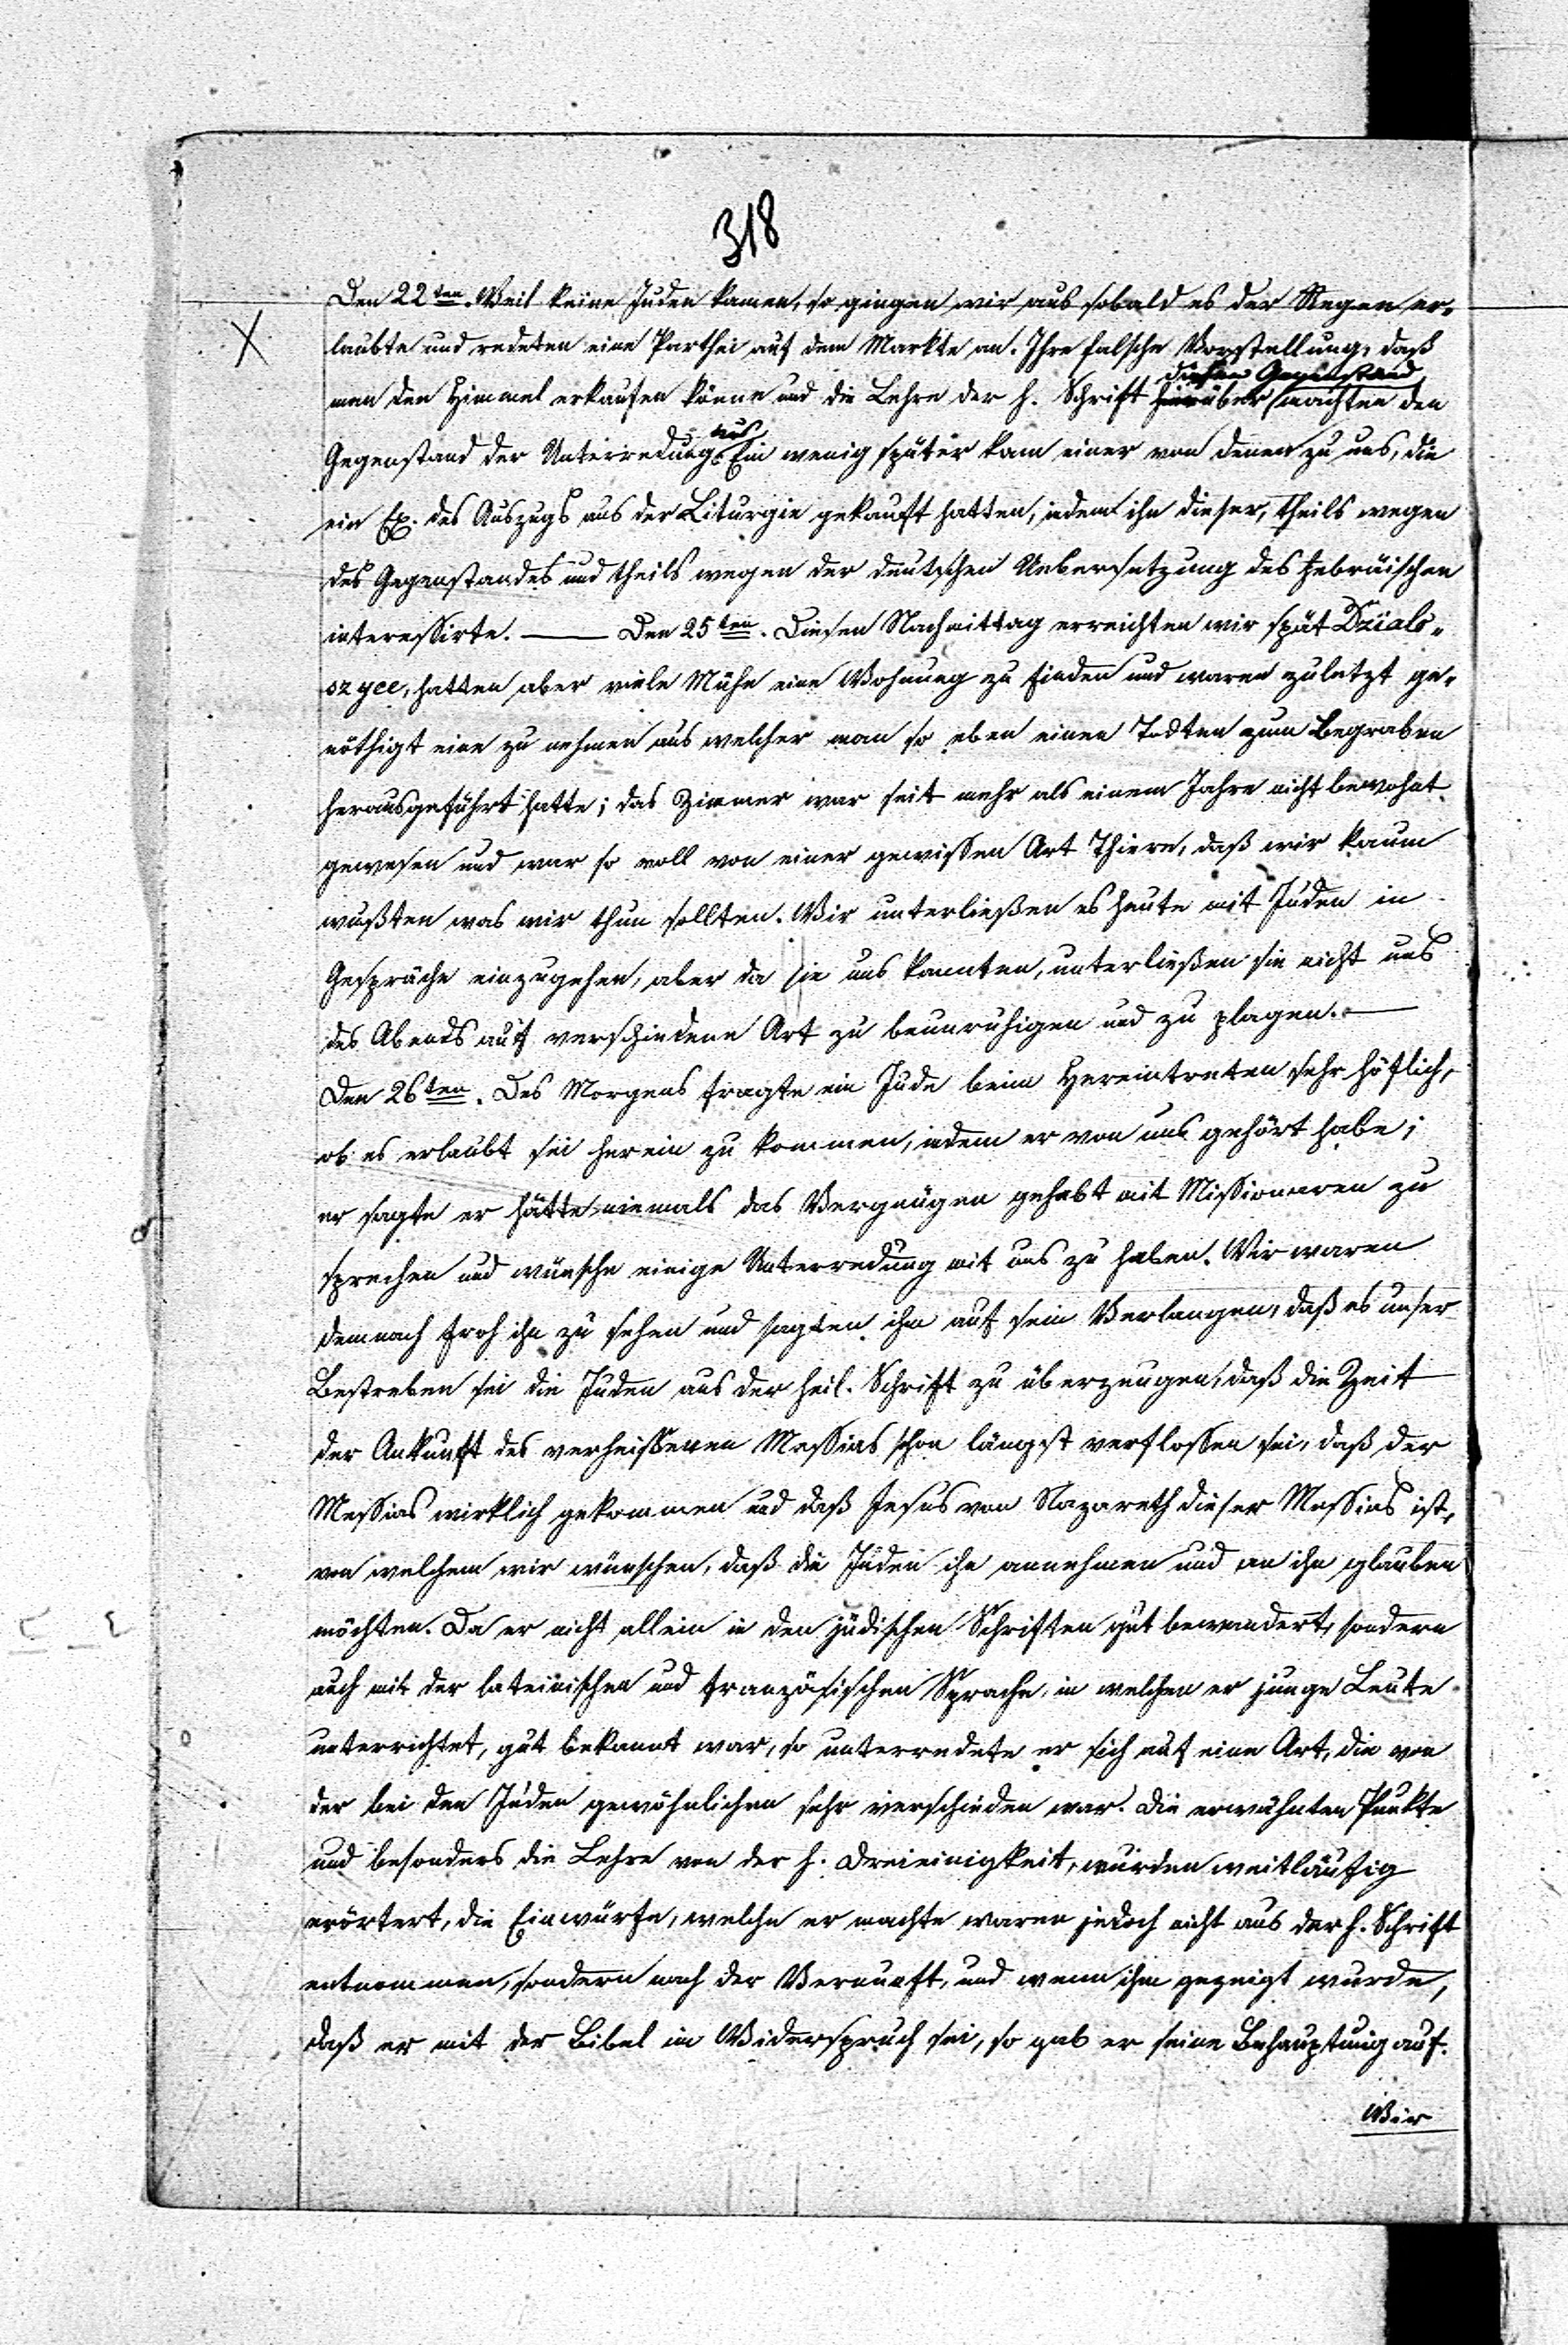 318
Den 22ten. Weil keine Juden kamen, so gingen wir aus sobald es der Regen er-
laubte und redeten eine Parthei auf dem Markte an. Ihre falsche Vorstellung, daß
diesen Gegenstand
man den Himmel erkaufen könne und die Lehre der h. Schrift hierüber machten den
aus
Gegenstand der Unterredung. Ein wenig später kam einer von denen zu uns, die
ein Ex. des Auszugs aus der Liturgie gekauft hatten, indem ihn dieser, theils wegen
des Gegenstandes und theils wegen der deutschen Uebersetzung des Hebräischen
interessirte. — Den 25ten. Diesen Nachmittag erreichten wir spät Dzialo-
szyce, hatten aber viele Mühe eine Wohnung zu finden und waren zuletzt ge-
nöthigt eine zu nehmen aus welcher man so eben einen Todten zum Begraben
herausgeführt hatte; das Zimmer war seit mehr als einem Jahre nicht bewohnt
gewesen und war so voll von einer gewissen Art Thiere, daß wir kaum
wußten was wir thun sollten. Wir unterließen es heute mit Juden in
Gespräche einzugehen, aber da sie uns kannten, unterließen sie nicht uns
des Abends auf verschiedene Art zu beunruhigen und zu plagen. —
Den 26ten. Des Morgens fragte ein Jude beim Hereintreten sehr höflich,
ob es erlaubt sei herein zu kommen, indem er von uns gehört habe;
er sagte er hätte niemals das Vergnügen gehabt mit Missionaren zu
sprechen und wünsche einige Unterredung mit uns zu haben. Wir waren
demnach froh ihn zu sehen und sagten ihm auf sein Verlangen, daß es unser
Bestreben sei die Juden aus der heil. Schrift zu überzeugen, daß die Zeit
der Ankunft des verheissenen Messias schon längst verflossen sei, daß der
Messias wirklich gekommen und daß Jesus von Nazareth dieser Messias ist,
von welchem wir wünschen, daß die Juden ihn annehmen und an ihn glauben
möchten. Da er nicht allein in den jüdischen Schriften gut bewandert, sondern
auch mit der lateinischen und französischen Sprache, in welchen er junge Leute
unterrichtet, gut bekannt war, so unterredete er sich auf eine Art, die von
der bei den Juden gewöhnlichen sehr verschieden war. Die erwähnten Punkte
und besonders die Lehre von der h. Dreieinigkeit, wurden weitläufig
erörtert, die Einwürfe, welche er machte waren jedoch nicht aus der h. Schrift
entnommen, sondern nach der Vernunft, und wenn ihm gezeigt wurde,
daß er mit der Bibel im Widerspruch sei, so gab er seine Behauptung auf.
Wir